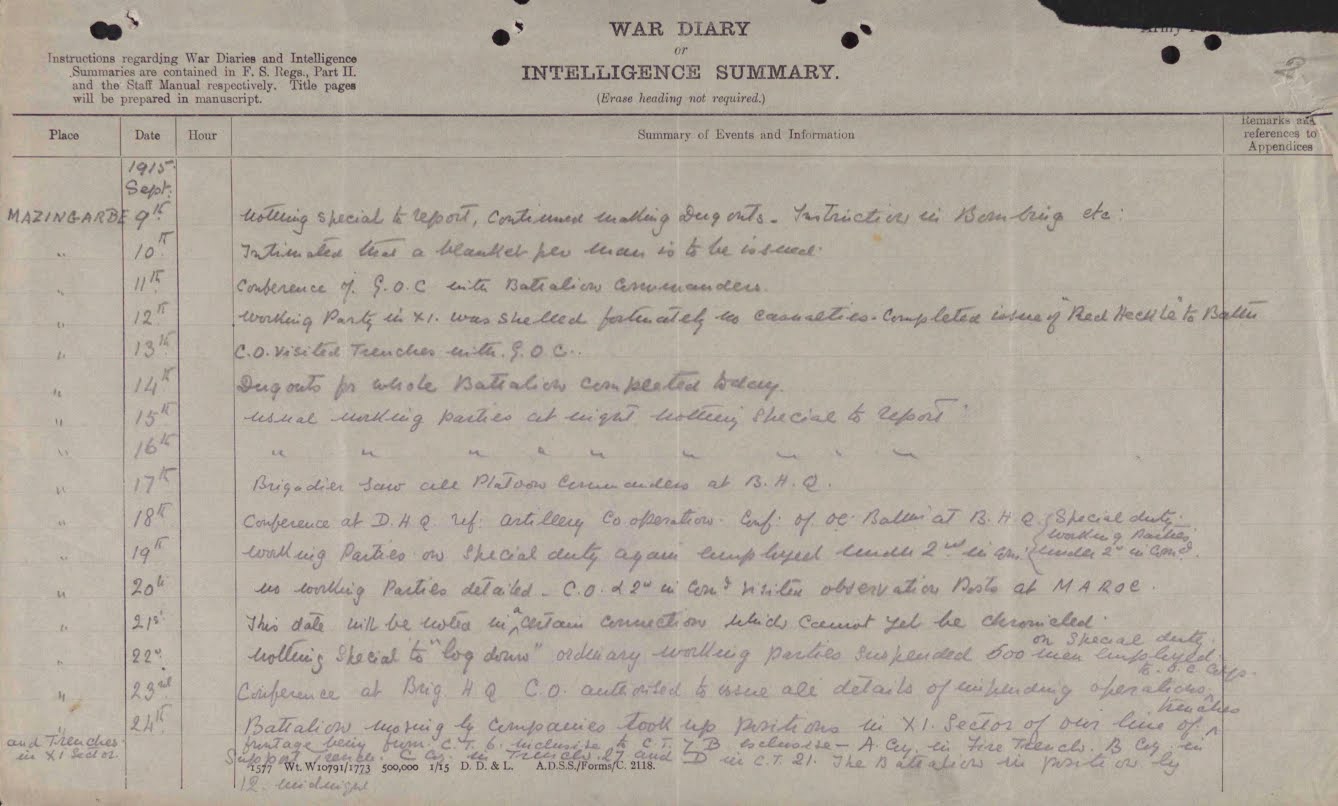 WAR DIARY
or
INTELLIGENCE SUMMARY.
(Erase heading not required.)
Instructions regarding War Diaries and Intelligence
Summaries are contained in F. S. Regs., Part II.
and the Staff Manual respectively. Title pages
will be prepared in manuscript.
2
Place Date Hour Summary of Events and Information Remarks and
references to
Appendices
1915
Sept.
MAZINGARBE 9th Nothing special to report, continued making Dugouts - Instruction in Bombing etc:
" 10th Intimated that a blanket per man is to be issued.
" 11th Conference of G.O.C with Battalion Commanders.
" 12th Working Party in X1. was shelled fortunately no casualties. Completed issue of "Red Heckle" to Battn
" 13th C.O. visited Trenches with G.O.C..
" 14th Dugouts for whole Battalion completed today.
" 15th usual working parties at night nothing special to report
" 16th " " " " " " " " "
" 17th Brigadier saw all Platoon Commanders at B.H.Q.
" 18th Conference at D.H.Q. ref: artillery Co.operation. Conf: of OC Battns at B.H.Q. {Special duty
Working Parties
under 2nd in Comd.
" 19th Working Parties on special duty again employed under 2nd in Com:
" 20th no working Parties detailed - C.O. & 2nd in Comd visited observation Posts at MAROC.
" 21st This date will be noted in a certain connection which cannot yet be chronicled
" 22nd Nothing special to "log down" ordinary working parties suspended 600 men employed
on special duty
to O.C. Coys.
" 23rd Conference at Brig. HQ C.O. authorised to issue all details of impending operations
" 24th Battalion moving by Companies took up positions in X1. Sector of our line of trenches
and Trenches
in X1 Sector.
frontage being from C.T. 6. inclusive to C.T. 7 B exclusive - A Coy. in Fire Trench. B Coy in
Support Trench. C Coy. in Trench 27 and D in C.T. 21. The Battalion in position by
12. midnight
1577 Wt. W10791/1773 500,000 1/15 D. D. & L. A.D.S.S./Forms/C. 2118.